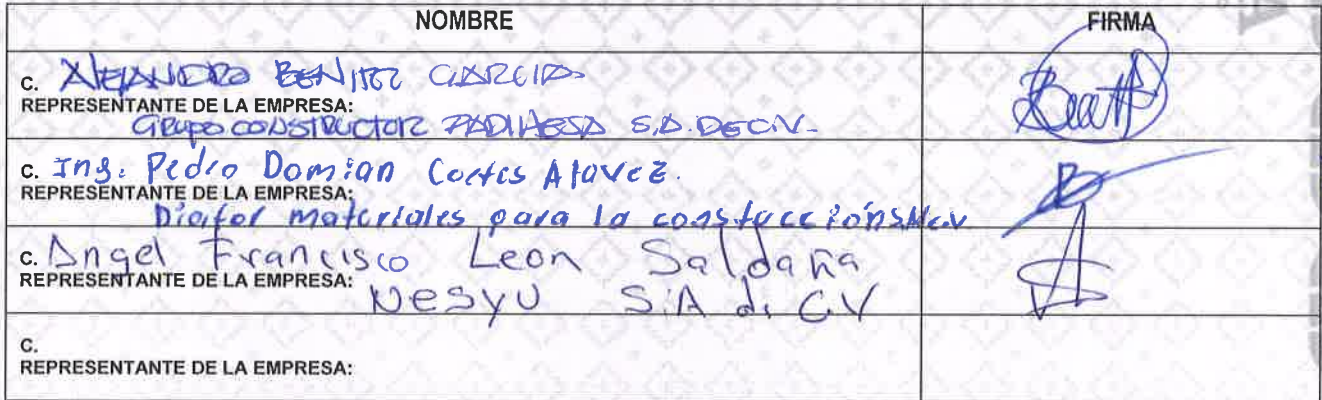 NOMBRE FIRMA
C. ALEJANDRO BENITEZ GARCIA
REPRESENTANTE DE LA EMPRESA:
GRUPO CONSTRUCTOR PADIHESA S.A. DE C.V.
C. Ing. Pedro Domian Cortes Alavez.
REPRESENTANTE DE LA EMPRESA:
Diafor materiales para la
C. Angel Francisco Leon Saldaña
REPRESENTANTE DE LA EMPRESA:
Nesyu S.A de C.V
C.
REPRESENTANTE DE LA EMPRESA: